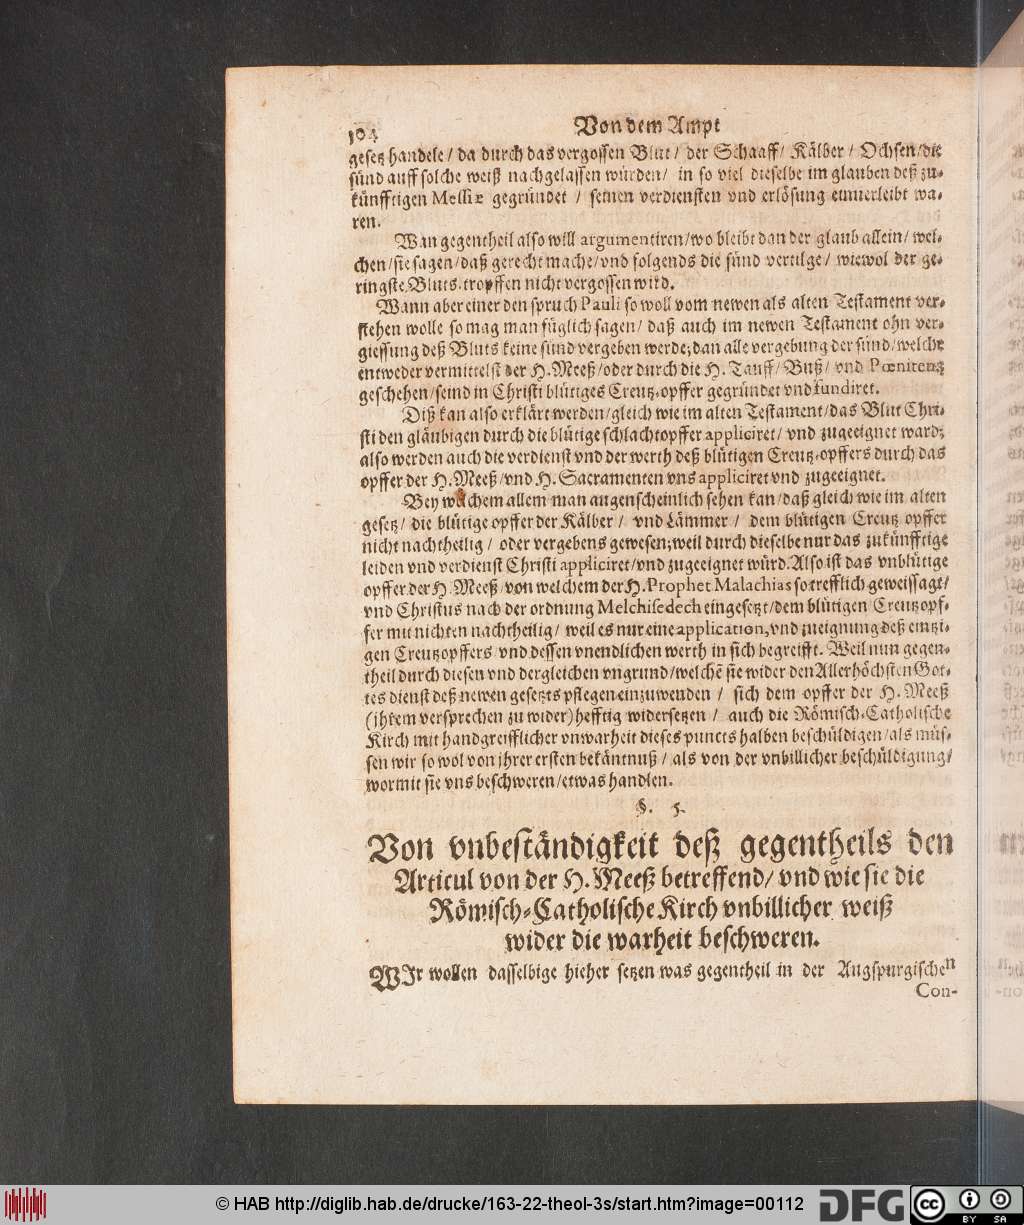 104
Von dem Ampt
gesetz handele / da durch das vergossen Blut / der Schaaff / Kälber / Ochsen / die
sünd auff solche weiß nachgelassen würden / in so viel dieselbe im glauben deß zu-
künfftigen Messiæ gegründet / seinen verdiensten vnd erlösung einuerleibt wa-
ren.
Wan gegentheil also will argumentiren / wo bleibt dan der glaub allein / wel-
chen / sie sagen / daß gerecht mache / vnd folgends die sünd vertilge / wiewol der ge-
ringste Bluts-tropffen nicht vergossen wird.
Wann aber einer den spruch Pauli so woll vom newen als alten Testament ver-
stehen wolle so mag man füglich sagen / daß auch im newen Testament ohn ver-
giessung deß Bluts keine sünd vergeben werde; dan alle vergebung der sünd / welche
entweder vermittelst der H. Meeß / oder durch die H. Tauff / Buß / vnd Pœnitentz
geschehen / seind in Christi blütiges Creutz-opffer gegründet vnd fundiret.
Diß kan also erklärt werden / gleich wie im alten Testament / das Blut Chri-
sti den gläubigen durch die blütige schlachtopffer appliciret / vnd zugeeignet ward;
also werden auch die verdienst vnd der werth deß blütigen Creutz-opffers durch das
opffer der H. Meeß / vnd H. Sacramenten vns appliciret vnd zugeeignet.
Bey welchem allem man augenscheinlich sehen kan / daß gleich wie im alten
gesetz / die blütige opffer der Kälber / vnd Lämmer / dem blütigen Creutz opffer
nicht nachtheilig / oder vergebens gewesen; weil durch dieselbe nur das zukünfftige
leiden vnd verdienst Christi appliciret / vnd zugeeignet würd. Also ist das vnblütige
opffer der H. Meeß / von welchem der H. Prophet Malachias so trefflich geweissagt /
vnd Christus nach der ordnung Melchisedech eingesetzt / dem blütigen Creutzopf-
fer mit nichten nachtheilig / weil es nur eine application, vnd zueignung deß eintzi-
gen Creutzopffers / vnd dessen vnendlichen werth in sich begreifft. Weil nun gegen-
theil durch diesen vnd dergleichen vngrund / welchē sie wider den Allerhöchsten Got-
tes dienst deß newen gesetzts pflegen einzuwenden / sich dem opffer der H. Meeß
(jhrem versprechen zu wider) hefftig widersetzen / auch die Römisch-Catholische
Kirch mit handgreifflicher vnwarheit dieses puncts halben beschüldigen / als müs-
sen wir so wol von jhrer ersten bekäntnuß / als von der vnbillicher beschüldigung /
wormit sie vns beschweren / etwas handlen.
§. 5.
Von vnbeständigkeit deß gegentheils den
Articul von der H. Meeß betreffend / vnd wie sie die
Römisch-Catholische Kirch vnbillicher weiß
wider die warheit beschweren.
WIr wollen dasselbige hieher setzen was gegentheil in der Augspurgischen
Con-
© HAB http://diglib.hab.de/drucke/163-22-theol-3s/start.htm?image=00112
DFG
cc
BY SA